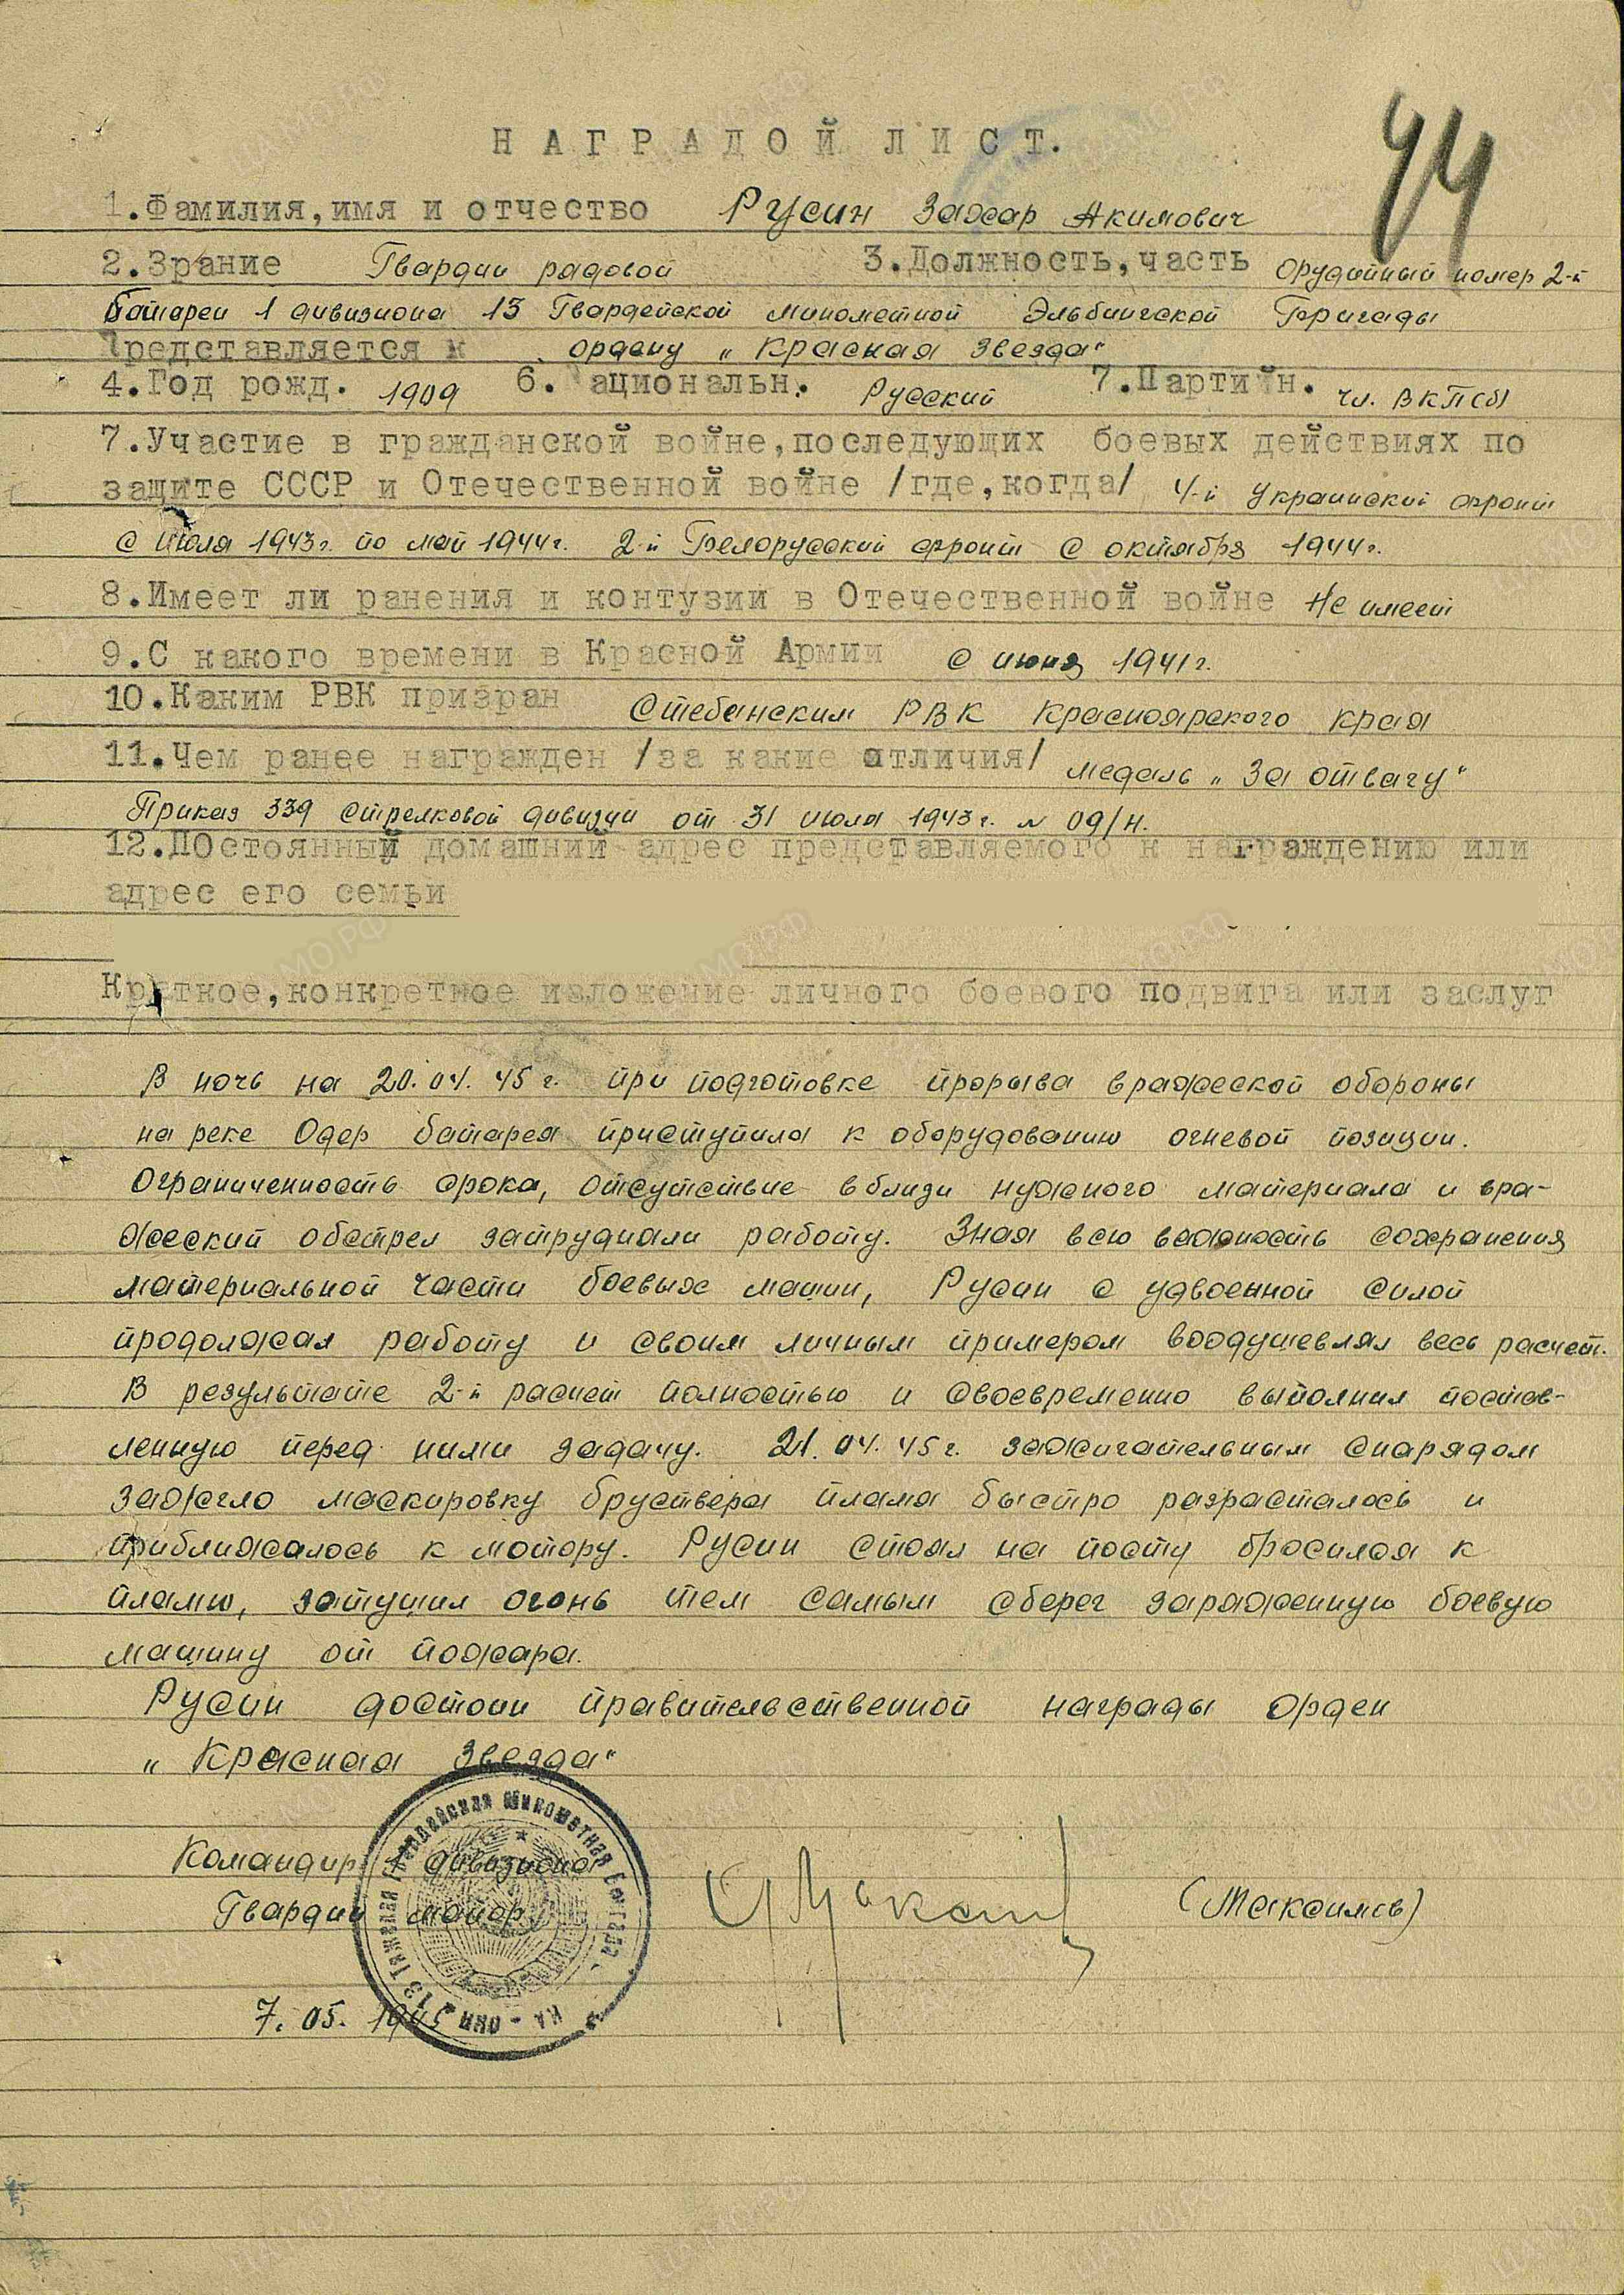 44
НАГРАДОЙ ЛИСТ.
1.Фамилия,имя и отчество Русин Захар Акимович
2.Зрание Гвардии рядовой 3.Должность,часть орудийный номер 2-й
батареи 1 дивизиона 13 Гвардейской минометной Эльбингской Бригады
Представляется к ордену „Красная Звезда"
4.Год рожд. 1909 6.Национальн. Русский 7.Партийн. чл. ВКП(б)
7.Участие в гражданской войне,последующих боевых действиях по
защите СССР и Отечественной войне /где,когда/ 4-й Украинский фронт
с июля 1943г. по май 1944г. 2-й Белорусский фронт с октября 1944г.
8.Имеет ли ранения и контузии в Отечественной войне Не имеет
9.С какого времени в Красной Армии с июня 1941г.
10.Каким РВК призран Стебанским РВК Красноярского края
11.Чем ранее награжден /за какие отличия/ медаль „За отвагу"
Приказ 339 стрелковой дивизии от 31 июля 1943г. № 09/н.
12.ПОстоянный домашний адрес представляемого к награждению или
адрес его семьи
Краткое,конкретное изложение личного боевого подвига или заслуг
В ночь на 20.04.45г. при подготовке прорыва вражеской обороны
на реке Одер батарея приступила к оборудованию огневой позиции.
Ограниченность срока, отсутствие вблизи нужного материала и вра-
жеский обстрел затрудняли работу. Зная всю важность сохранения
материальной части боевых машин, Русин с удвоенной силой
продолжал работу и своим личным примером воодушевлял весь расчет.
В результате 2-й расчет полностью и своевременно выполнил постав-
ленную перед ними задачу. 21.04.45г. зажигательным снарядом
зажгло маскировку бруствера пламя быстро разрасталось и
приближалось к мотору. Русин стоял на посту бросился к
пламю, затушил огонь тем самым сберег заряженную боевую
машину от пожара.
Русин достоин правительственной награды орден
„Красная Звезда"
Командир 1 дивизиона
Гвардии майор (Максимов)
7.05.1945
13 Тяжелая Гвардейская Минометная Бригада КА - НКО
ЦАМО.РФ